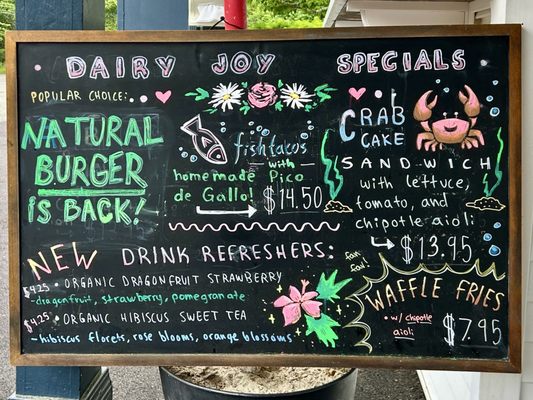 DAIRY JOY SPECIALS
POPULAR CHOICE:
NATURAL
BURGER
iS BACK!
fish tacos
with
homemade Pico
de Gallo!
$14.50
CRAB
CAKE
SANDWICH
with lettuce,
tomato, and
chipotle aioli
$13.95
NEW DRINK REFRESHERS:
$4.25 • ORGANIC DRAGONFRUIT STRAWBERRY
- dragonfruit, strawberry, pomegranate
$4.25 • ORGANIC HIBISCUS SWEET TEA
- hibiscus florets, rose blooms, orange blossoms
fan
fav!
WAFFLE FRIES
• w/ chipotle
aioli
$7.95